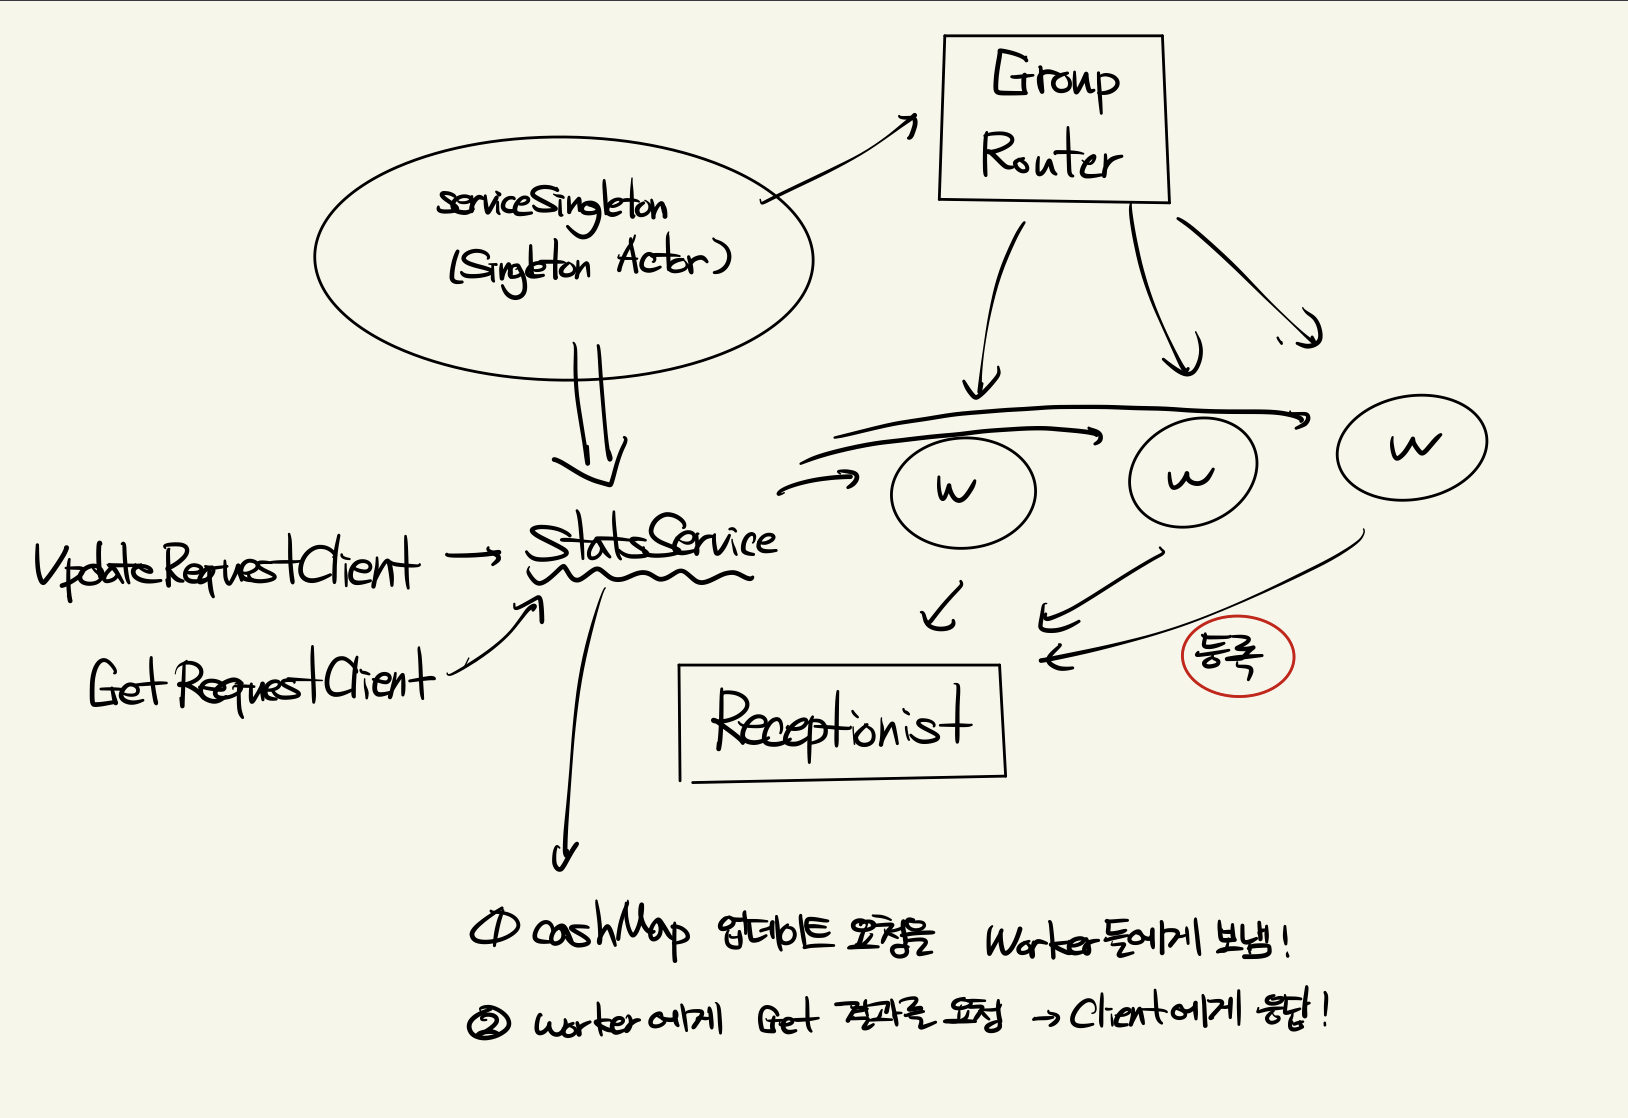 Group
Router
serviceSingleton
(Singleton Actor)
w
w
w
UpdateRequestClient
StatsService
GetRequestClient
등록
Receptionist
① cashMap 업데이트 요청을 Worker들에게 보냄!
② worker에게 Get 결과를 요청 → Client에게 응답!